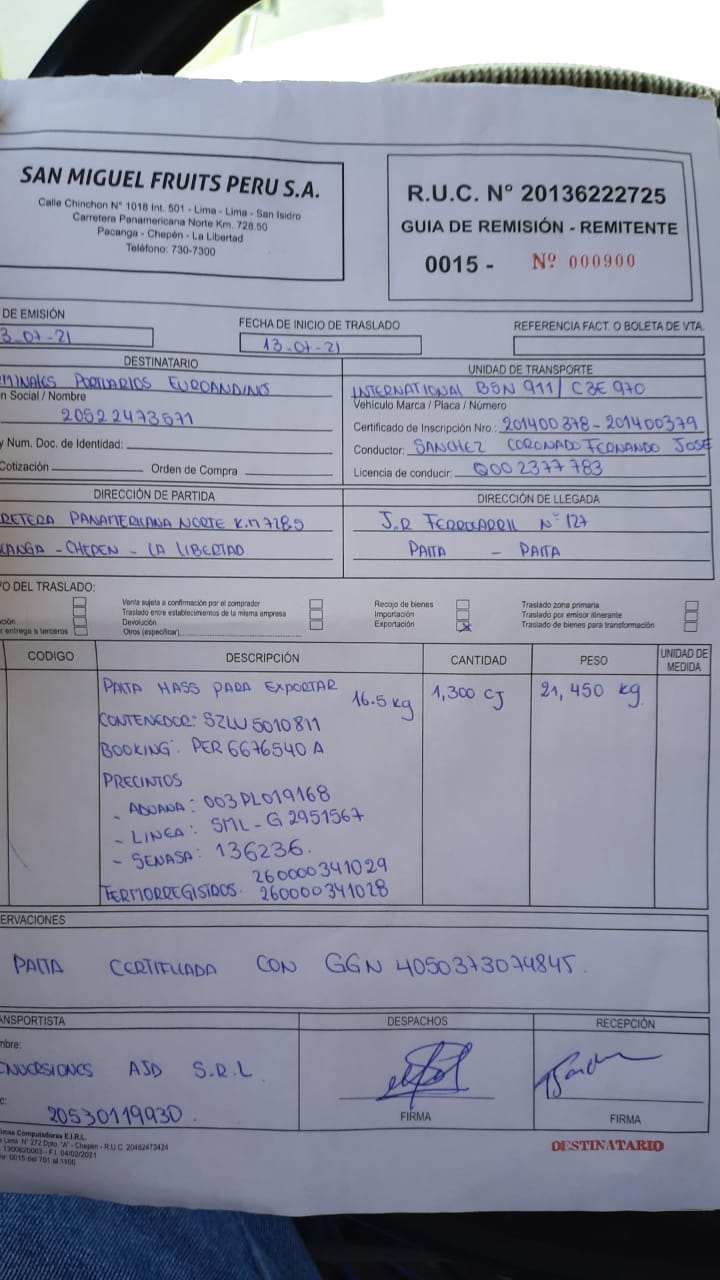 SAN MIGUEL FRUITS PERU S.A.
Calle Chinchon N° 1018 Int. 501 - Lima - Lima - San Isidro
Carretera Panamericana Norte Km. 728.50
Pacanga - Chepén - La Libertad
Teléfono: 730-7300
R.U.C. N° 20136222725
GUIA DE REMISIÓN - REMITENTE
0015 - Nº 000900
DE EMISIÓN
3-07-21
FECHA DE INICIO DE TRASLADO
13-07-21
REFERENCIA FACT. O BOLETA DE VTA.
DESTINATARIO
MINALES PORTUARIOS EUROANDINO
n Social / Nombre
20522473571
y Num. Doc. de Identidad:
Cotización Orden de Compra
UNIDAD DE TRANSPORTE
INTERNATIONAL B5N 911 / C3E 970
Vehículo Marca / Placa / Número
Certificado de Inscripción Nro.: 201400378-201400379
Conductor: SANCHEZ CORONADO FERNANDO JOSE
Licencia de conducir: Q002377783
DIRECCIÓN DE PARTIDA
RETERA PANAMERICANA NORTE K.m 728.5
ANGA - CHEPEN - LA LIBERTAD
DIRECCIÓN DE LLEGADA
J.R FERROCARRIL N° 127
PAITA - PAITA
O DEL TRASLADO:
ción
r entrega a terceros
Venta sujeta a confirmación por el comprador
Traslado entre establecimientos de la misma empresa
Devolución
Otros (especificar)
Recojo de bienes
Importación
Exportación X
Traslado zona primaria
Traslado por emisor itinerante
Traslado de bienes para transformación
CODIGO DESCRIPCIÓN CANTIDAD PESO UNIDAD DE MEDIDA
PALTA HASS PARA EXPORTAR 16.5 kg 1,300 CJ 21,450 kg
CONTENEDOR: SZLU 5010811
BOOKING: PER 6676540 A
PRECINTOS
- ADUANA: 003PL019168
- LINEA: SML-G 2951567
- SENASA: 136236.
260000341029
TERMORREGISTROS. 260000341028
ERVACIONES
PALTA CERTIFICADA CON GGN 4050373074845.
ANSPORTISTA
mbre:
INVERSIONES AJD S.R.L
c:
20530119930.
DESPACHOS
FIRMA
RECEPCIÓN
FIRMA
imas Computadoras E.I.R.L.
Lima N° 272 Dpto. "A" - Chepen - R.U.C. 20482473424
F.I. 04/02/2021
0015 del 701 al 1100
DESTINATARIO